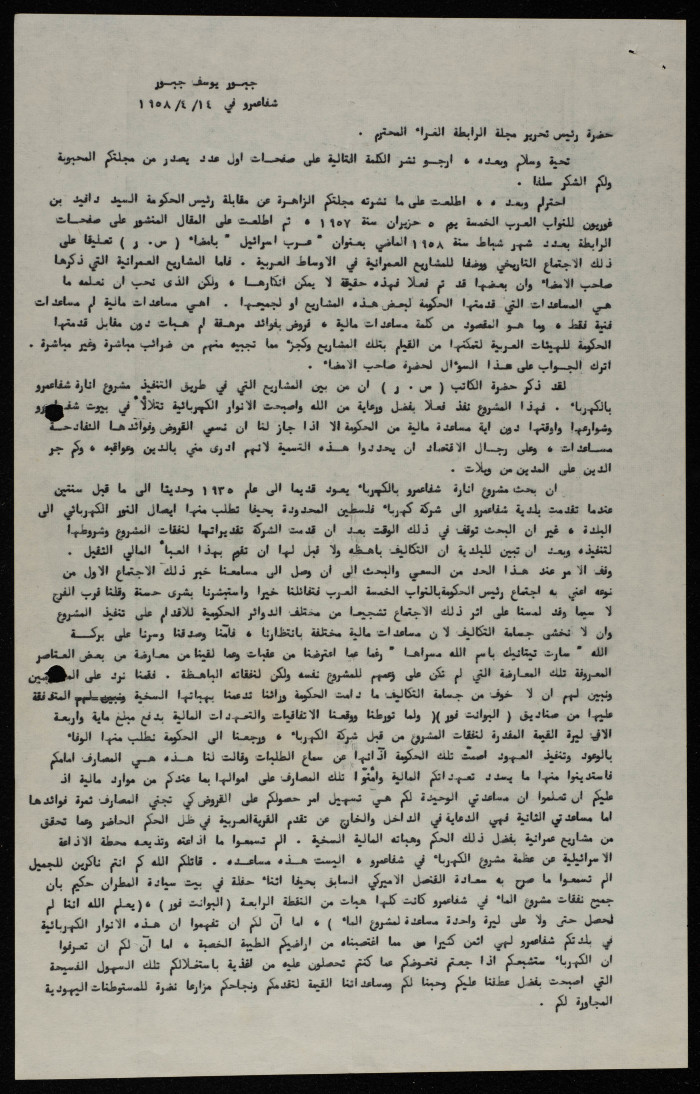 جبور يوسف جبور
شفاعمرو في ١٤/ ٤/ ١٩٥٨
حضرة رئيس تحرير مجلة الرابطة الغراء المحترم .
تحية وسلام وبعده ، ارجو نشر الكلمة التالية على صفحات اول عدد يصدر من مجلتكم المحبوبة
ولكم الشكر سلفا .
احترام وبعد ، ، اطلعت على ما نشرته مجلتكم الزاهرة عن مقابلة رئيس الحكومة السيد دافيد بن
غوريون للنواب العرب الخمسة يوم ٥ حزيران سنة ١٩٥٧ ، ثم اطلعت على المقال المنشور على صفحات
الرابطة بعدد شهر شباط سنة ١٩٥٨ الماضي بعنوان " عرب اسرائيل " بامضاء ( س . ر ) تعليقا على
ذلك الاجتماع التاريخي ووصفا للمشاريع العمرانية في الاوساط العربية . فاما المشاريع العمرانية التي ذكرها
صاحب الامضاء وان بعضها قد تم فعلا فهذه حقيقة لا يمكن انكارها ، ولكن الذى نحب ان نعلمه ما
هي المساعدات التي قدمتها الحكومة لبعض هذه المشاريع او لجميعها . اهي مساعدات مالية ام مساعدات
فنية فقط ، وما هو المقصود من كلمة مساعدات مالية ، قروض بفوائد مرهقة ام هبات دون مقابل قدمتها
الحكومة للهيئات العربية لتمكنها من القيام بتلك المشاريع وكجزء مما تجبيه منهم من ضرائب مباشرة وغير مباشرة .
اترك الجواب على هذا السوءال لحضرة صاحب الامضاء .
لقد ذكر حضرة الكاتب ( س . ر ) ان من بين المشاريع التي في طريق التنفيذ مشروع انارة شفاعمرو
بالكهرباء . فهذا المشروع نفذ فعلا بفضل ورعاية من الله واصبحت الانوار الكهربائية تتلألأ في بيوت شفاعمرو
وشوارعها واوقتها دون اية مساعدة مالية من الحكومة الا اذا جاز لنا ان نسمي القروض وفوائدها الفادحة
مساعدات ، وعلى رجال الاقتصاد ان يحددوا هذه التسمية لانهم ادرى مني بالدين وعواقبه ، وكم جر
الدين على المدين من ويلات .
ان بحث مشروع انارة شفاعمرو بالكهرباء يعود قديما الى عام ١٩٣٥ وحديثا الى ما قبل سنتين
عندما تقدمت بلدية شفاعمرو الى شركة كهرباء فلسطين المحدودة بحيفا تطلب منها ايصال النور الكهربائي الى
البلدة ، غير ان البحث توقف في ذلك الوقت بعد ان قدمت الشركة تقديراتها لنفقات المشروع وشروطها
لتنفيذه وبعد ان تبين للبلدية ان التكاليف باهظه ولا قبل لها ان تقيم بهذا العبء المالي الثقيل .
وقف الامر عند هذا الحد من السعي والبحث الى ان وصل الى مسامعنا خبر ذلك الاجتماع الاول من
نوعه اعني به اجتماع رئيس الحكومة بالنواب الخمسة العرب فتفائلنا خيرا واستبشرنا بشرى حسنة وقلنا قرب الفرج
لا سيما وقد لمسنا على اثر ذلك الاجتماع تشجيعا من مختلف الدوائر الحكومية للاقدام على تنفيذ المشروع
وان لا نخشى جسامة التكاليف لان مساعدات مالية مختلفة بانتظارنا ، فآمنا وصدقنا وسرنا على بركة
الله " سارت تيتانيك باسم الله مسراها " رغما عما اعترضنا من عقبات وعما لقينا من معارضة من بعض العناصر
المعروفة تلك المعارضة التي لم تكن على زعمهم للمشروع نفسه ولكن لنفقاته الباهظة . فقمنا نرد على
ونبين لهم ان لا خوف من جسامة التكاليف ما دامت الحكومة ورائنا تدعمنا بهباتها السخية ونبين لهم المتدفقة
عليها من صناديق ( البوانت فور )( ولما تورطنا ووقعنا الاتفاقيات والتعهدات المالية بدفع مبلغ ماية واربعة
الاف ليرة القيمة المقدرة لنفقات المشروع من قبل شركة الكهرباء ، ورجعنا الى الحكومة نطلب منها الوفاء
بالوعود وتنفيذ العهود اصمّت تلك الحكومة آذانها عن سماع الطلبات وقالت لنا هذه هي المصارف امامكم
فاستدينوا منها ما يسدد تعهداتكم المالية وأمّنوا تلك المصارف على اموالها بما عندكم من موارد مالية اذ
عليكم ان تعلموا ان مساعدتي الوحيدة لكم هي تسهيل امر حصولكم على القروض كي تجني المصارف ثمرة فوائدها
اما مساعدتي الثانية فهي الدعاية في الداخل والخارج عن تقدم القرية العربية في ظل الحكم الحاضر وعما تحقق
من مشاريع عمرانية بفضل ذلك الحكم وهباته المالية السخية . الم تسمعوا ما اذاعته وتذيعه محطة الاذاعة
الاسرائيلية عن عظمة مشروع الكهرباء في شفاعمرو ، اليست هذه مساعده . قاتلكم الله كم انتم ناكرين للجميل
الم تسمعوا ما صرح به سعادة القنصل الاميركي السابق بحيفا اثناء حفلة في بيت سيادة المطران حكيم بان
جميع نفقات مشروع الماء في شفاعمرو كانت كلها هبات من النقطة الرابعة ( البوانت فور ) ،( يعلم الله اننا لم
نحصل حتى ولا على ليرة واحدة مساعدة لمشروع الماء ) ، اما آن لكم ان تفهموا ان هذه الانوار الكهربائية
في بلدتكم شفاعمرو لهي اثمن كثيرا مما اغتصبناه من اراضيكم الطيبة الخصبة ، اما آن لكم ان تعرفوا
ان الكهرباء ستشبعكم اذا جعتم فتعوضكم عما كنتم تحصلون عليه من اغذية باستغلالكم تلك السهول الفسيحة
التي اصبحت بفضل عطفنا عليكم وحبنا لكم ومساعداتنا القيمة لتقدمكم ونجاحكم مزارعا نضرة للمستوطنات اليهودية
المجاورة لكم .